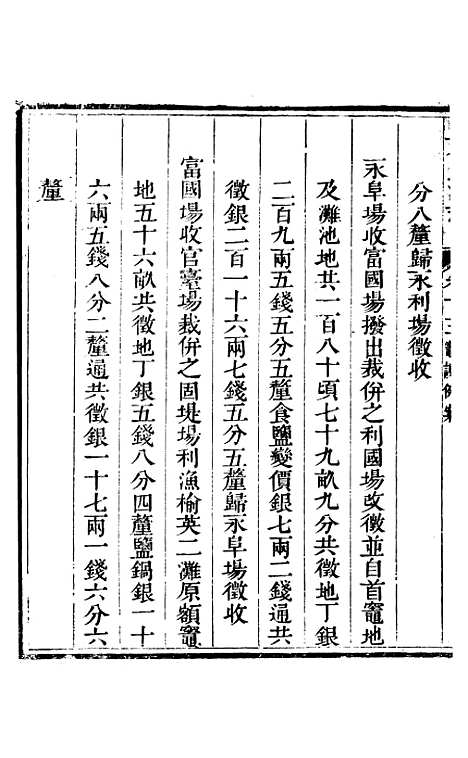 分八釐歸永利場徵收
永阜場收富國場撥出裁併之利國場改徵並自首竈地
及灘池地共一百八十頃七十九畝九分共徵地丁銀
二百九兩五錢五分五釐食鹽變價銀七兩二錢通共
徵銀二百一十六兩七錢五分五釐歸永阜場徵收
富國場收官臺場裁併之固堤場利漁榆英二灘原額竈
地五十六畝共徵地丁銀五錢八分四釐鹽鍋銀一十
六兩五錢八分二釐通共徵銀一十七兩一錢六分六
釐